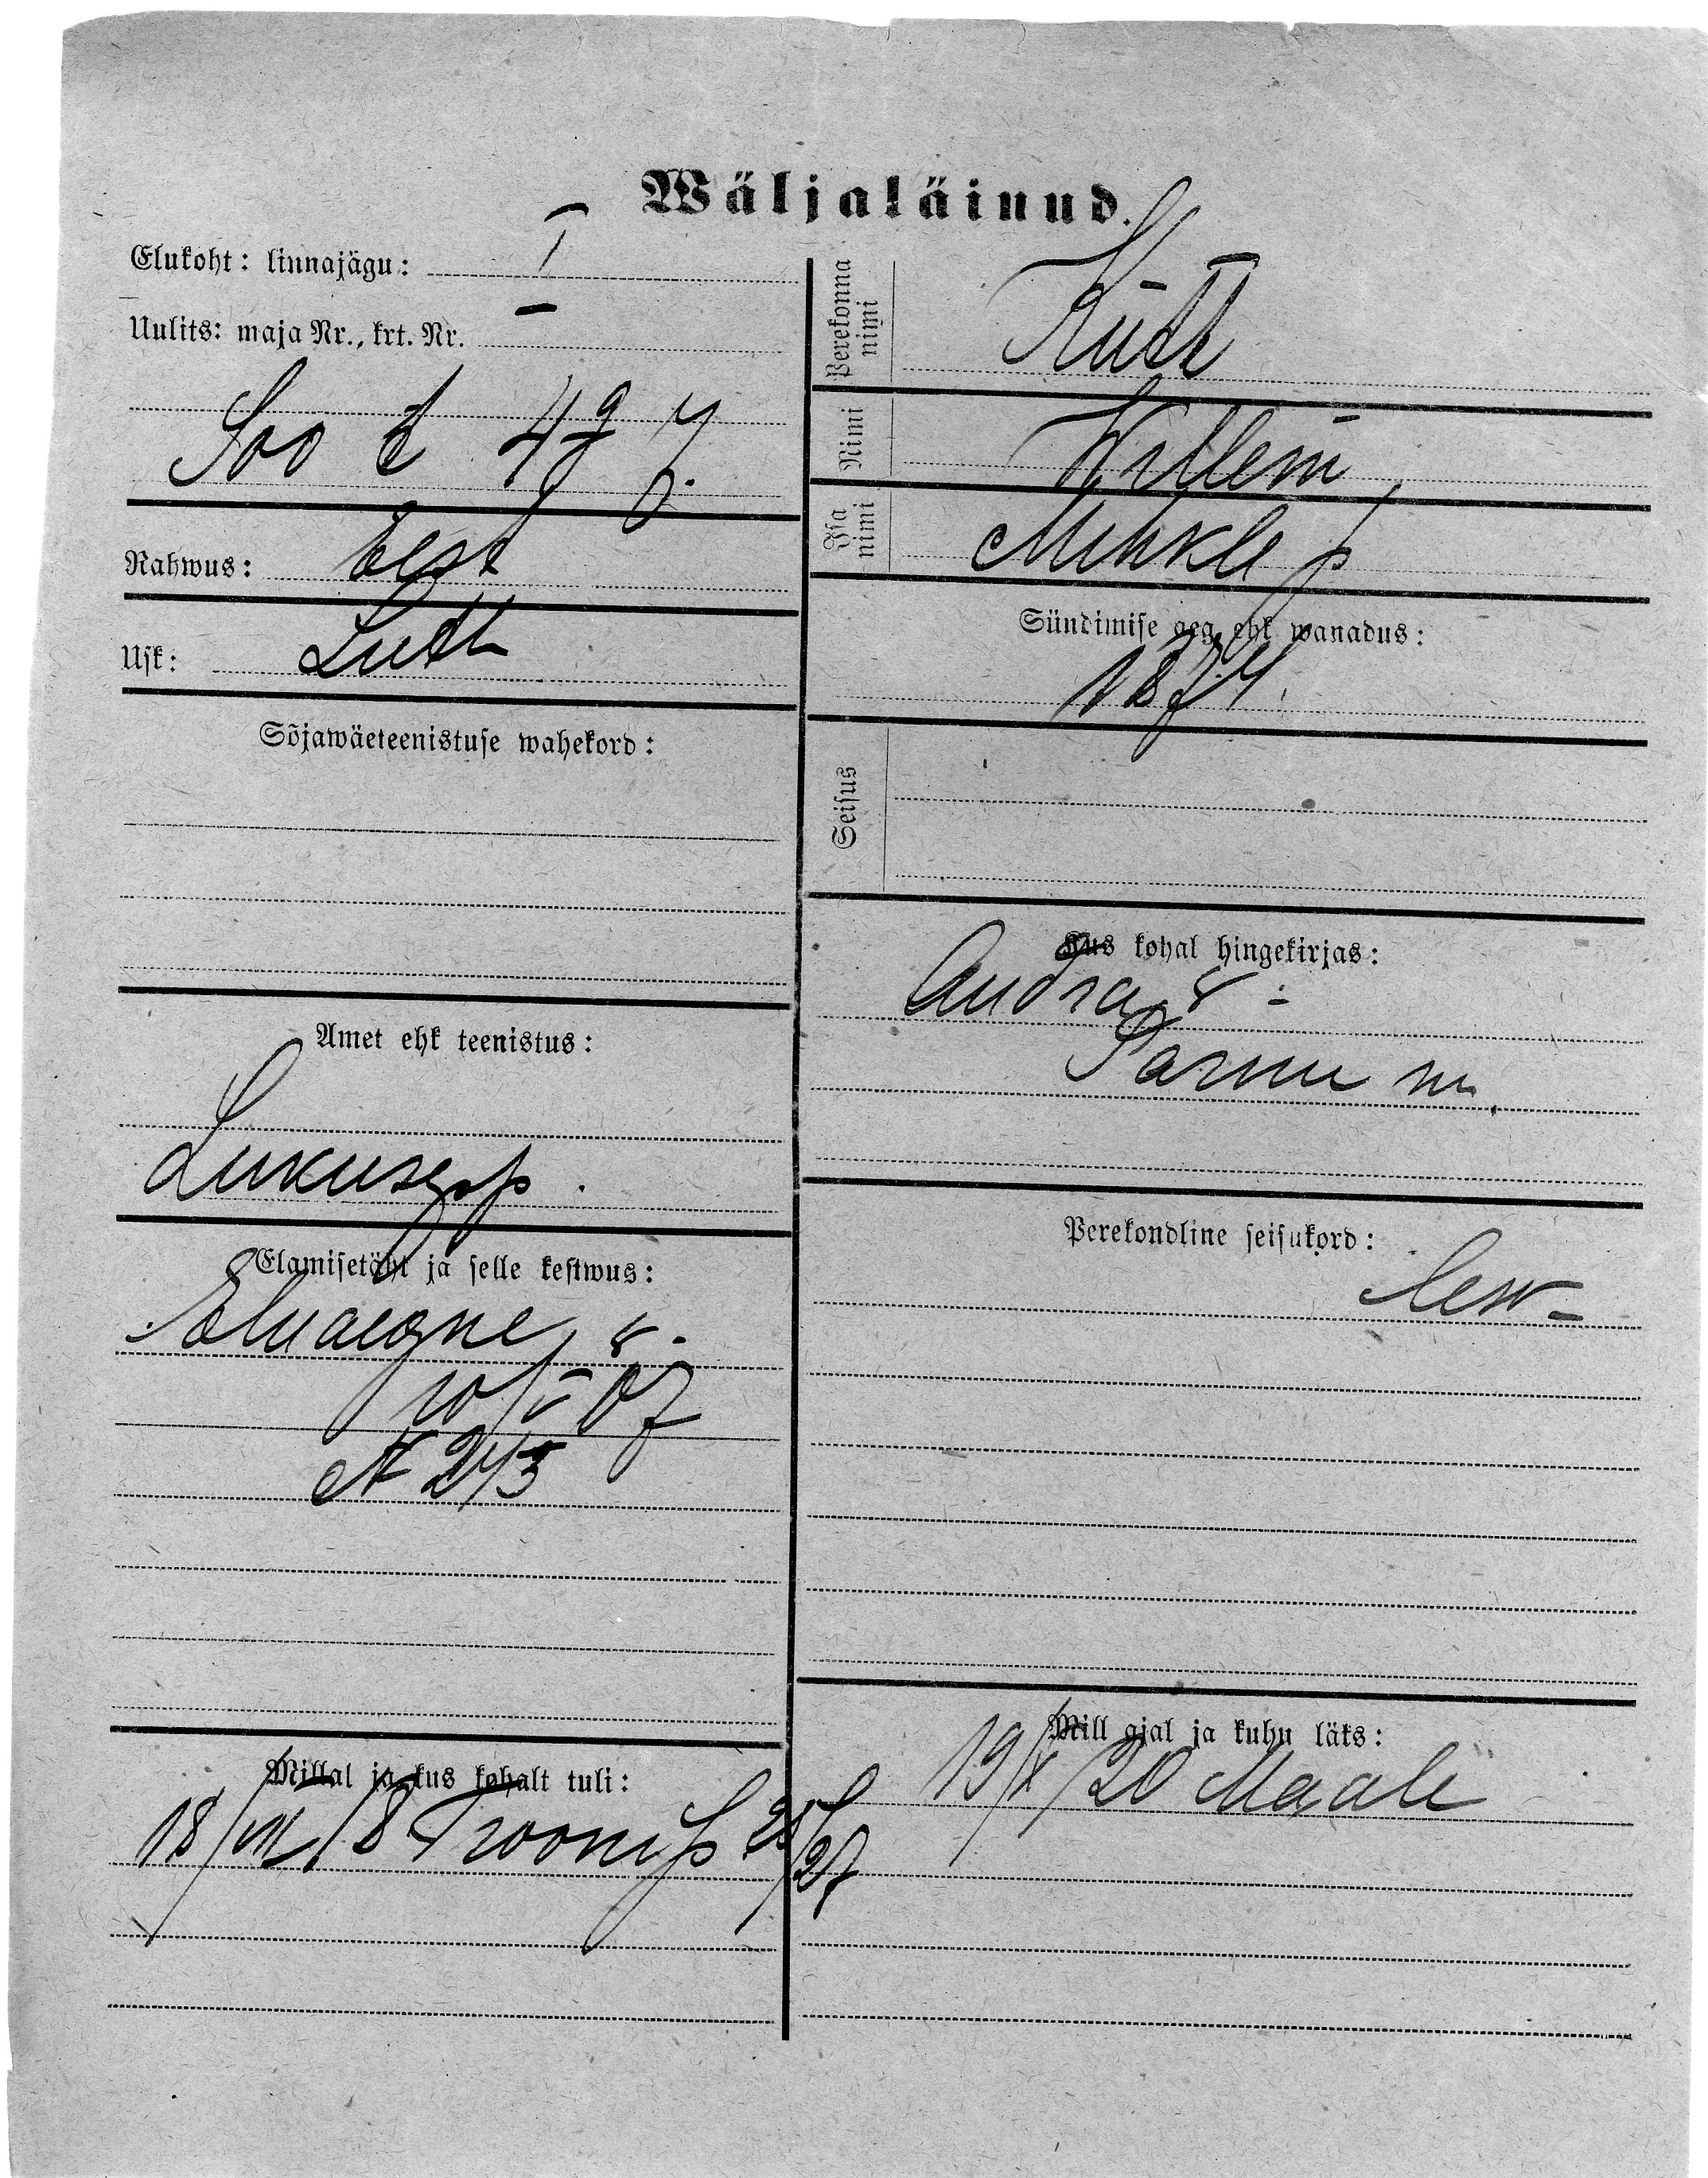 Wäljaläinud.
Elukoht: linnajägu: I
Uulits: maja Nr., krt. Nr.
Soo t 49
Rahwus: Eest
Usk: Luth
Sõjawäeteenistuse wahekord:
Amet ehk teenistus:
Lukusepp.
Elamisetäht ja selle kestwus:
Eluaegne,
10/V 07
N 243
Millal ja kus kohalt tuli:
18/VII 18 Trooni p 25/27
Perekonna nimi
Kütt
Nimi
Willem
Isa nimi
Mihkli p
Sündimise aeg ehk wanadus:
1874.
Seisus
Kus kohal hingekirjas:
Audra
Pärnu m.
Perekondline seisukord:
lesk
Mill ajal ja kuhu läks:
19/X 20 Maale